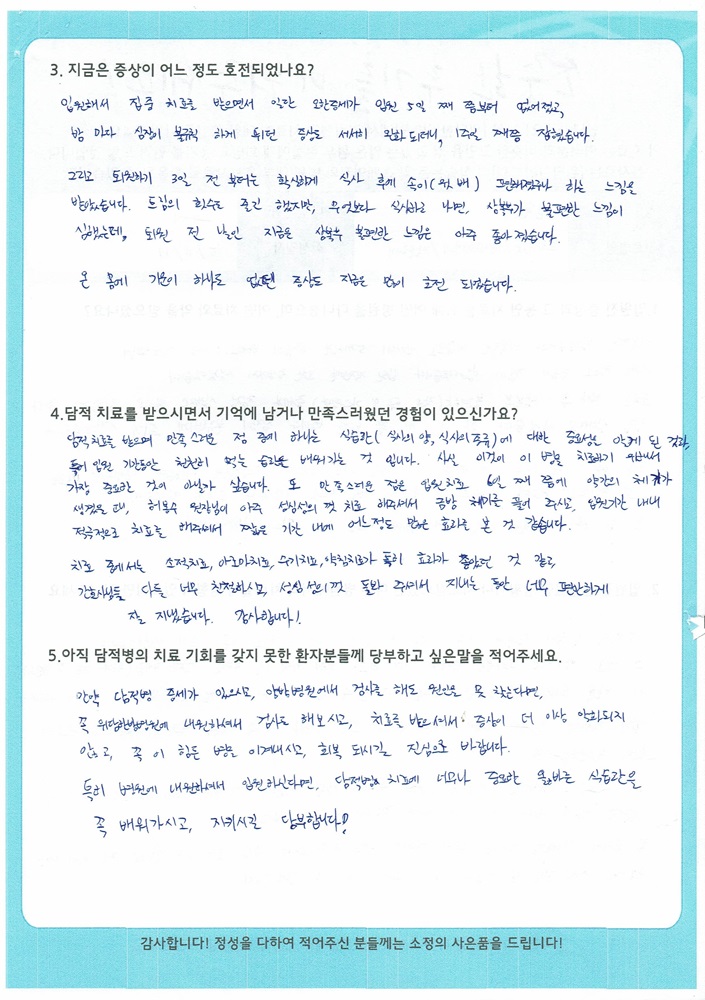 3. 지금은 증상이 어느 정도 호전되었나요?
입원해서 집중 치료를 받으면서 일단 오한증세가 입원 5일 째 쯤부터 없어졌고,
밤 마다 심장이 불규칙 하게 뛰던 증상도 서서히 완화되더니, 1주일 째쯤 잡혔습니다.
그리고 퇴원하기 3일 전 부터는 확실하게 식사 후에 속이(윗 배) 편해졌구나 하는 느낌을
받았습니다. 트림의 횟수도 줄긴 했지만, 무엇보다 식사하고 나면, 상복부가 불편한 느낌이
심했는데, 퇴원 전 날인 지금은 상복부 불편한 느낌은 아주 좋아졌습니다.
온 몸에 기운이 하나도 없던 증상도 지금은 많이 호전 되었습니다.
4.담적 치료를 받으시면서 기억에 남거나 만족스러웠던 경험이 있으신가요?
담적치료를 받으며 만족스러운 점 중에 하나는 식습관(식사의 양, 식사의 종류)에 대한 중요성을 알게 된 것과,
특히 입원 기간동안 천천히 먹는 습관을 배워가는 것 입니다. 사실 이것이 이 병을 치료하기 위해서
가장 중요한 것이 아닐까 싶습니다. 또 만족스러운 점은 입원치료 6일 째 쯤에 약간의 체기가
생겼을 때, 허봉수 원장님이 아주 성심성의 껏 치료 해주셔서 금방 체기를 풀어 주시고, 입원기간 내내
적극적으로 치료를 해주셔서 짧은 기간 내에 어느정도 많은 효과를 본 것 같습니다.
치료 중에서는 소적치료, 아로마치료, 수기치료, 약침치료가 특히 효과가 좋았던 것 같고,
간호사님들 다들 너무 친절하시고, 성심성의껏 돌봐 주셔서 지내는 동안 너무 편안하게
잘 지냈습니다. 감사합니다!
5.아직 담적병의 치료 기회를 갖지 못한 환자분들께 당부하고 싶은말을 적어주세요.
만약 담적병 증세가 있으시고, 양방병원에서 검사를 해도 원인을 못 찾는다면,
꼭 위담한방병원에 내원하셔서 검사도 해보시고, 치료를 받으셔서 증상이 더 이상 악화되지
않고, 꼭 이 힘든 병을 이겨내시고, 회복 되시길 진심으로 바랍니다.
특히 병원에 내원하셔서 입원하신다면, 담적병의 치료에 너무나 중요한 올바른 식습관을
꼭 배워가시고, 지키시길 당부합니다!
감사합니다! 정성을 다하여 적어주신 분들께는 소정의 사은품을 드립니다!